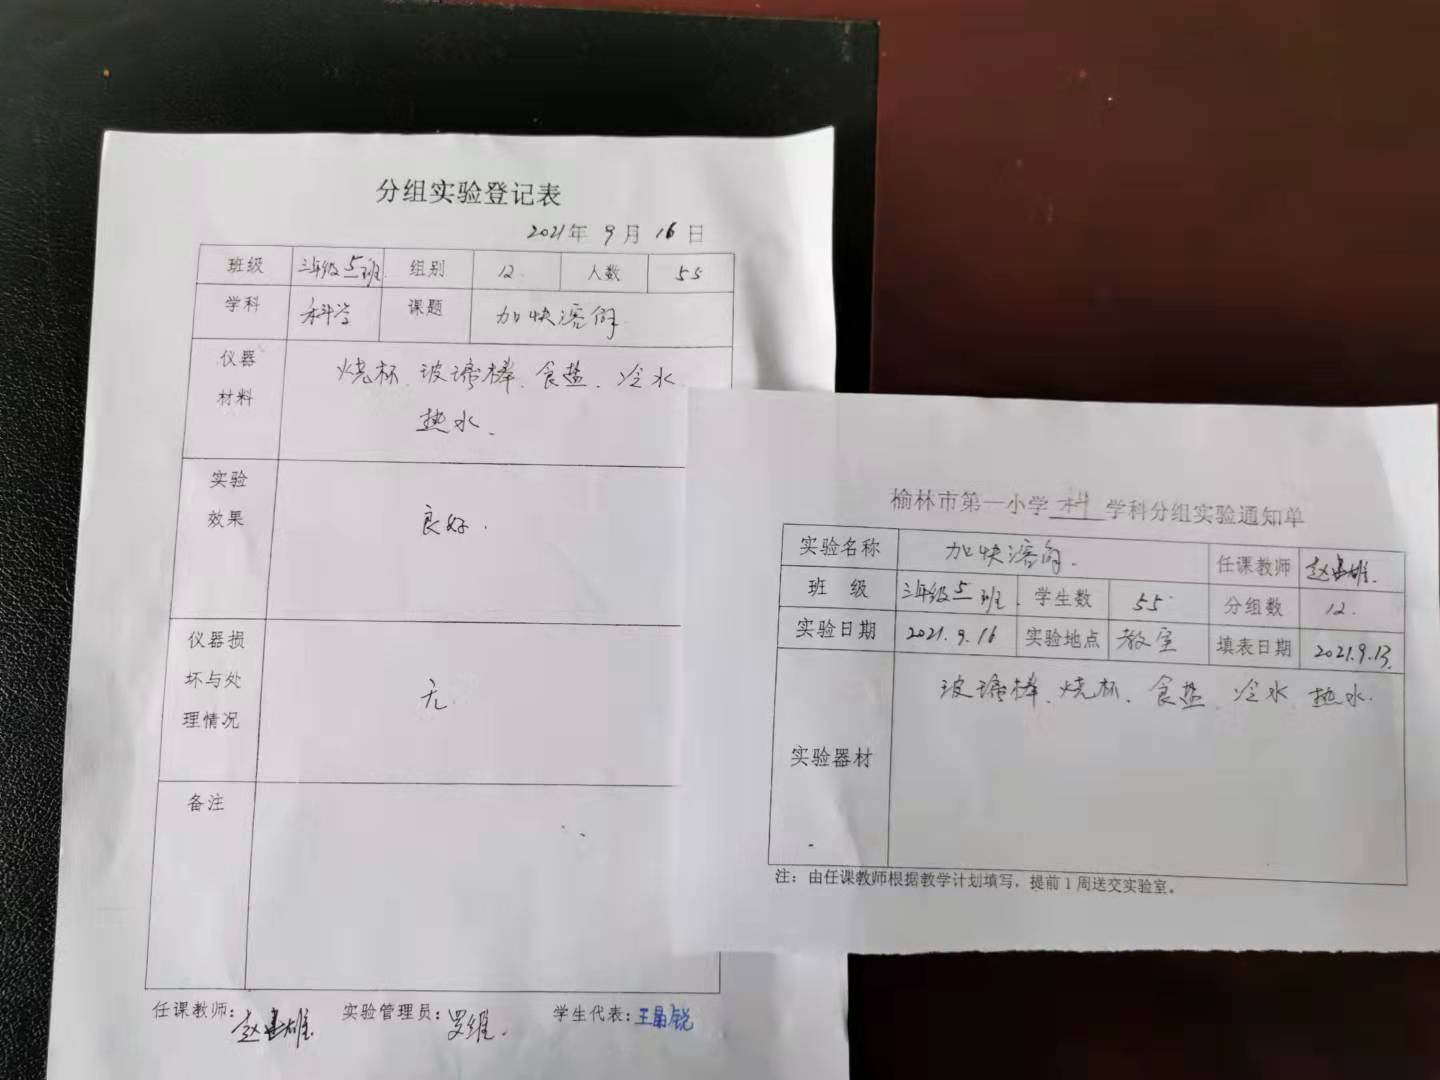 分组实验登记表
2021年 9月 16日
班级 三年级5班 组别 12 人数 55
学科 科学 课题 加快溶解
仪器材料 烧杯、玻璃棒、食盐、冷水
热水.
实验效果 良好.
仪器损坏与处理情况 无.
备注
任课教师: 赵建雄 实验管理员: 罗维. 学生代表: 王晶锐
榆林市第一小学 科 学科分组实验通知单
实验名称 加快溶解. 任课教师 赵建雄.
班 级 三年级5班. 学生数 55 分组数 12.
实验日期 2021.9.16 实验地点 教室 填表日期 2021.9.13.
实验器材 玻璃棒、烧杯、食盐、冷水 热水.
注：由任课教师根据教学计划填写，提前1周送交实验室。